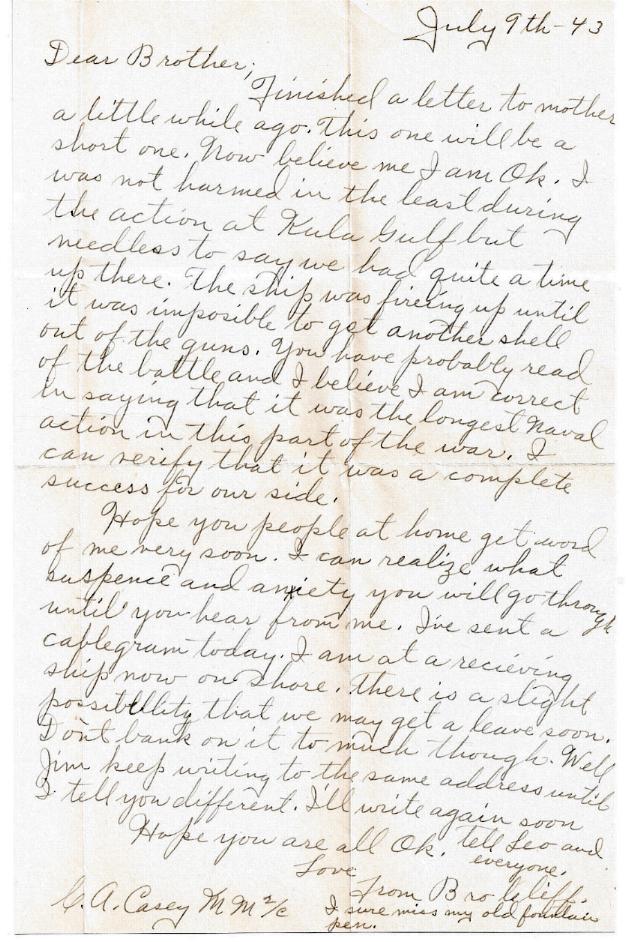 July 9th - 43
Dear Brother;
Finished a letter to mother
a little while ago. This one will be a
short one. Now believe me I am Ok. I
was not harmed in the least during
the action at Kula Gulf but
needless to say we had quite a time
up there. The ship was fireing up until
it was imposible to get another shell
out of the guns. You have probably read
of the battle and I believe I am correct
in saying that it was the longest Naval
action in this part of the war. I
can verify that it was a complete
success for our side.
Hope you people at home get word
of me very soon. I can realize what
suspence and anxiety you will go through
until you hear from me. I've sent a
cablegram today. I am at a recieving
ship now on shore. There is a slight
possibility that we may get a leave soon.
Don't bank on it to much though. Well
Jim keep writing to the same address until
I tell you different. I'll write again soon
Hope you are all Ok. tell Leo and
everyone.
Love
From Bro Cliff.
C. A. Casey M M 2/c
I sure miss my old fountain
pen.